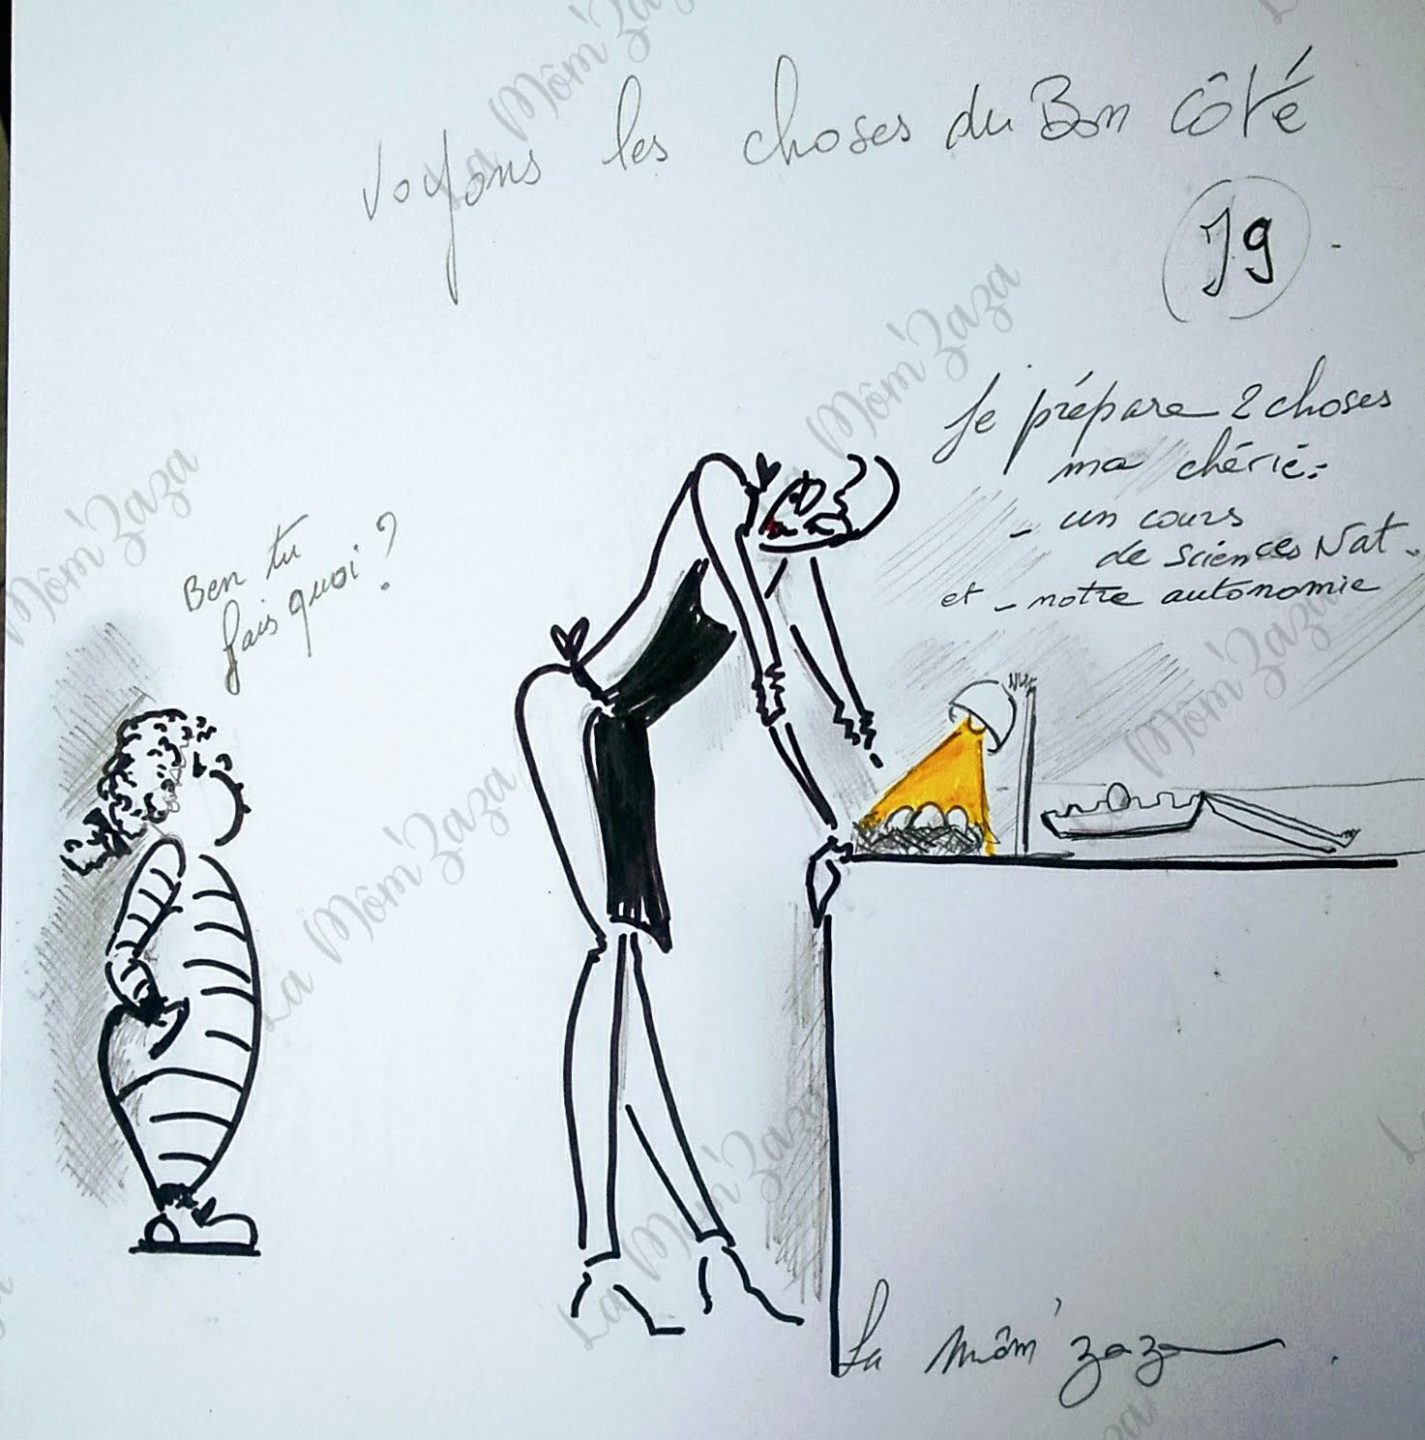 Voyons les choses du Bon côté
J9
Je prépare 2 choses
ma chérie :
- un cours
de Sciences Nat.
et - notre autonomie
Ben tu
fais quoi ?
La Môm'zaza
La Môm'Zaza
La Môm'Zaza
La Môm'Zaza
La Môm'Zaza
La Môm'Zaza
La Môm'Zaza